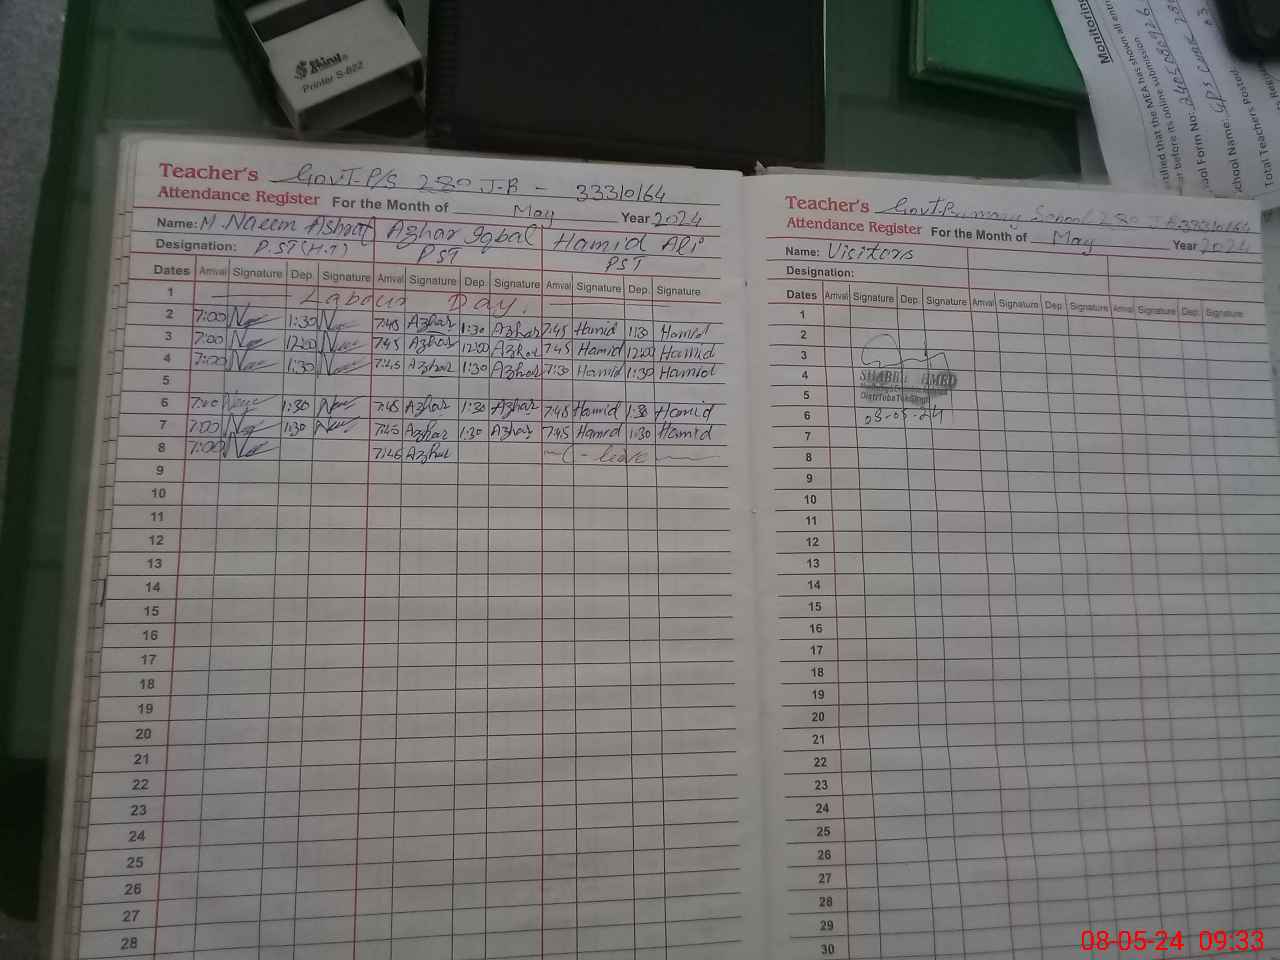 Shiny
Printer S-822
Monitoring
that the MEA has shown all
before its online submission
ool Form No:
chool Name: GPS
Total Teachers Posted
Teacher's Govt. P/S 280 J-B - 33310164
Attendance Register For the Month of May Year 2024
Name: M Naeem Ashraf Azhar Iqbal Hamid Ali
Designation: P.ST(H.T) PST PST
Dates Arrival Signature Dep. Signature Arrival Signature Dep. Signature Arrival Signature Dep. Signature
1 Labour Day.
2 7:00 1:30 7:45 Azhar 1:30 Azhar 7:45 Hamid 1:30 Hamid
3 7:00 12:00 7:45 Azhar 12:00 Azhar 7:45 Hamid 12:00 Hamid
4 7:00 1:30 7:45 Azhar 1:30 Azhar 7:30 Hamid 1:30 Hamid
5
6 7:00 1:30 7:45 Azhar 1:30 Azhar 7:45 Hamid 1:30 Hamid
7 7:00 1:30 7:45 Azhar 1:30 Azhar 7:45 Hamid 1:30 Hamid
8 7:00 7:46 Azhar leave
9
10
11
12
13
14
15
16
17
18
19
20
21
22
23
24
25
26
27
28
Teacher's Govt. Primary School 280 J.B 33310164
Attendance Register For the Month of May Year 2024
Name: Visitors
Designation:
Dates Arrival Signature Dep. Signature Arrival Signature Dep. Signature Arrival Signature Dep. Signature
1
2
3
4
5
6 03-05-24
7
8
9
10
11
12
13
14
15
16
17
18
19
20
21
22
23
24
25
26
27
28
29
30
08-05-24 09:33